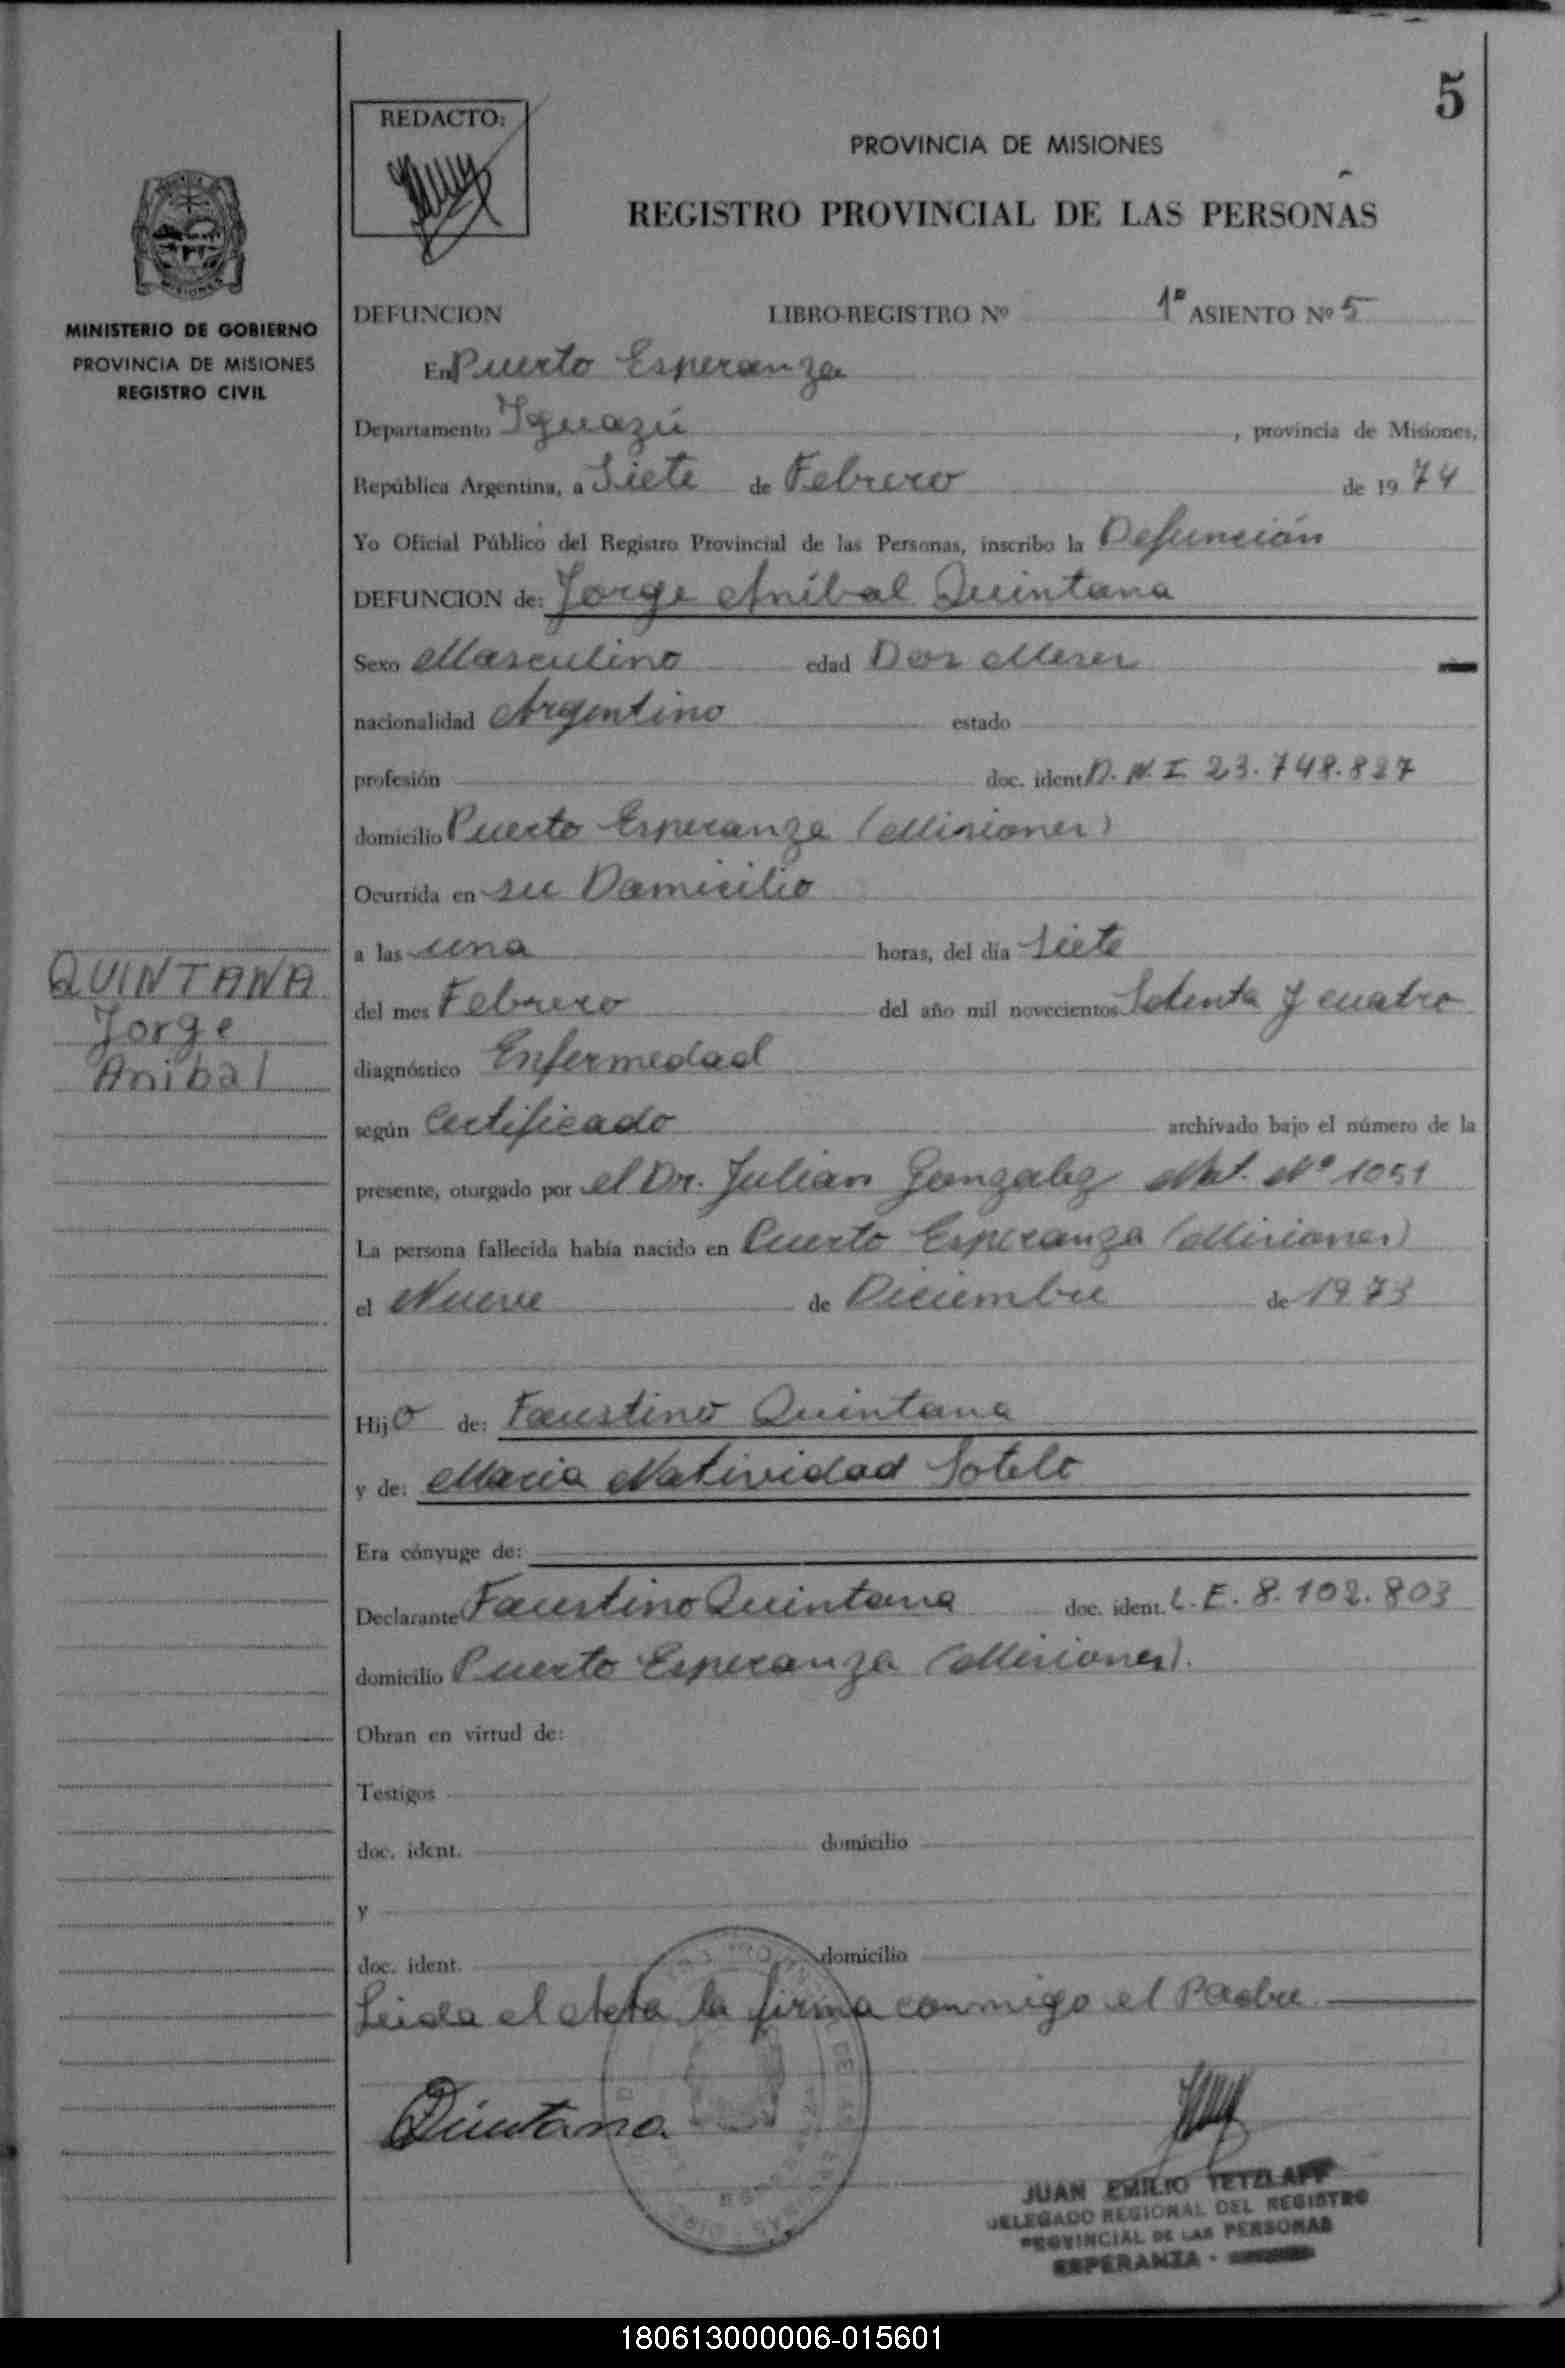 5
REDACTO:
PROVINCIA DE MISIONES
REGISTRO PROVINCIAL DE LAS PERSONAS
MINISTERIO DE GOBIERNO
PROVINCIA DE MISIONES
REGISTRO CIVIL
DEFUNCION LIBRO-REGISTRO Nº 1º ASIENTO Nº 5
En Puerto Esperanza
Departamento Iguazú, provincia de Misiones,
República Argentina, a Siete de Febrero de 1974
Yo Oficial Público del Registro Provincial de las Personas, inscribo la Defunción
DEFUNCION de: Jorge Aníbal Quintana
Sexo Masculino edad Dos Meses
nacionalidad Argentino estado
profesión doc. ident. D.N.I 23.748.827
domicilio Puerto Esperanza (Misiones)
Ocurrida en su Domicilio
a las una horas, del día Siete
QUINTANA
Jorge
Anibal
del mes Febrero del año mil novecientos Setenta y cuatro
diagnóstico Enfermedad
según Certificado archivado bajo el número de la
presente, oturgado por el Dr. Julian Gonzalez Mat. Nº 1051
La persona fallecida había nacido en Puerto Esperanza (Misiones)
el Nueve de Diciembre de 1973
Hijo de: Faustino Quintana
y de: Maria Natividad Sotelo
Era cónyuge de:
Declarante Faustino Quintana doc. ident. L.E. 8.102.803
domicilio Puerto Esperanza (Misiones).
Obran en virtud de:
Testigos
doc. ident. domicilio
y
doc. ident. domicilio
Leida el Acta la firma conmigo el Padre
Quintana
JUAN EMILIO TETZLAFF
DELEGADO REGIONAL DEL REGISTRO
PROVINCIAL DE LAS PERSONAS
ESPERANZA -
180613000006-015601